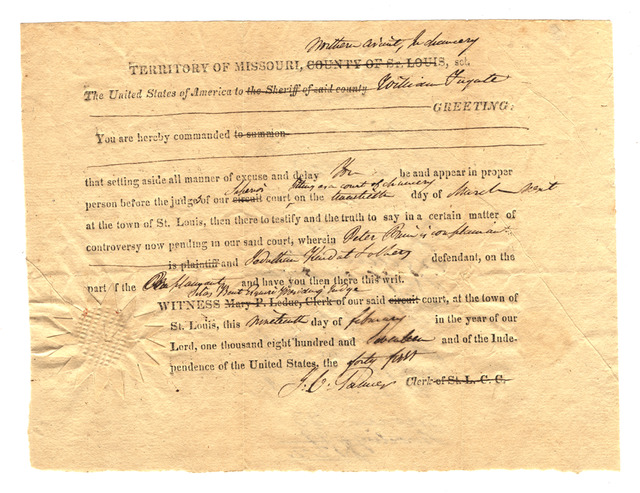 Northern Circuit, In chancery
TERRITORY OF MISSOURI, COUNTY OF St. LOUIS, sct.
The United States of America to the Sheriff of said county William Fugate
GREETING:
You are hereby commanded to summon
that setting aside all manner of excuse and delay You be and appear in proper
Superior sitting as a court of chancery
person before the judges of our circuit court, on the day of March next
at the town of St. Louis, then there to testify and the truth to say in a certain matter of
controversy now pending in our said court, wherein Peter is complainant
is plaintiff and Kind & others defendant, on the
part of the Complainants and have you then there this writ.
Silas Bent Esquire Presiding Judge
WITNESS Mary P. Leduc, Clerk of our said circuit court, at the town of
St. Louis, this nineteenth day of February in the year of our
Lord, one thousand eight hundred and seventeen and of the Inde-
pendence of the United States, the forty first
Clerk of St. L. C. C.